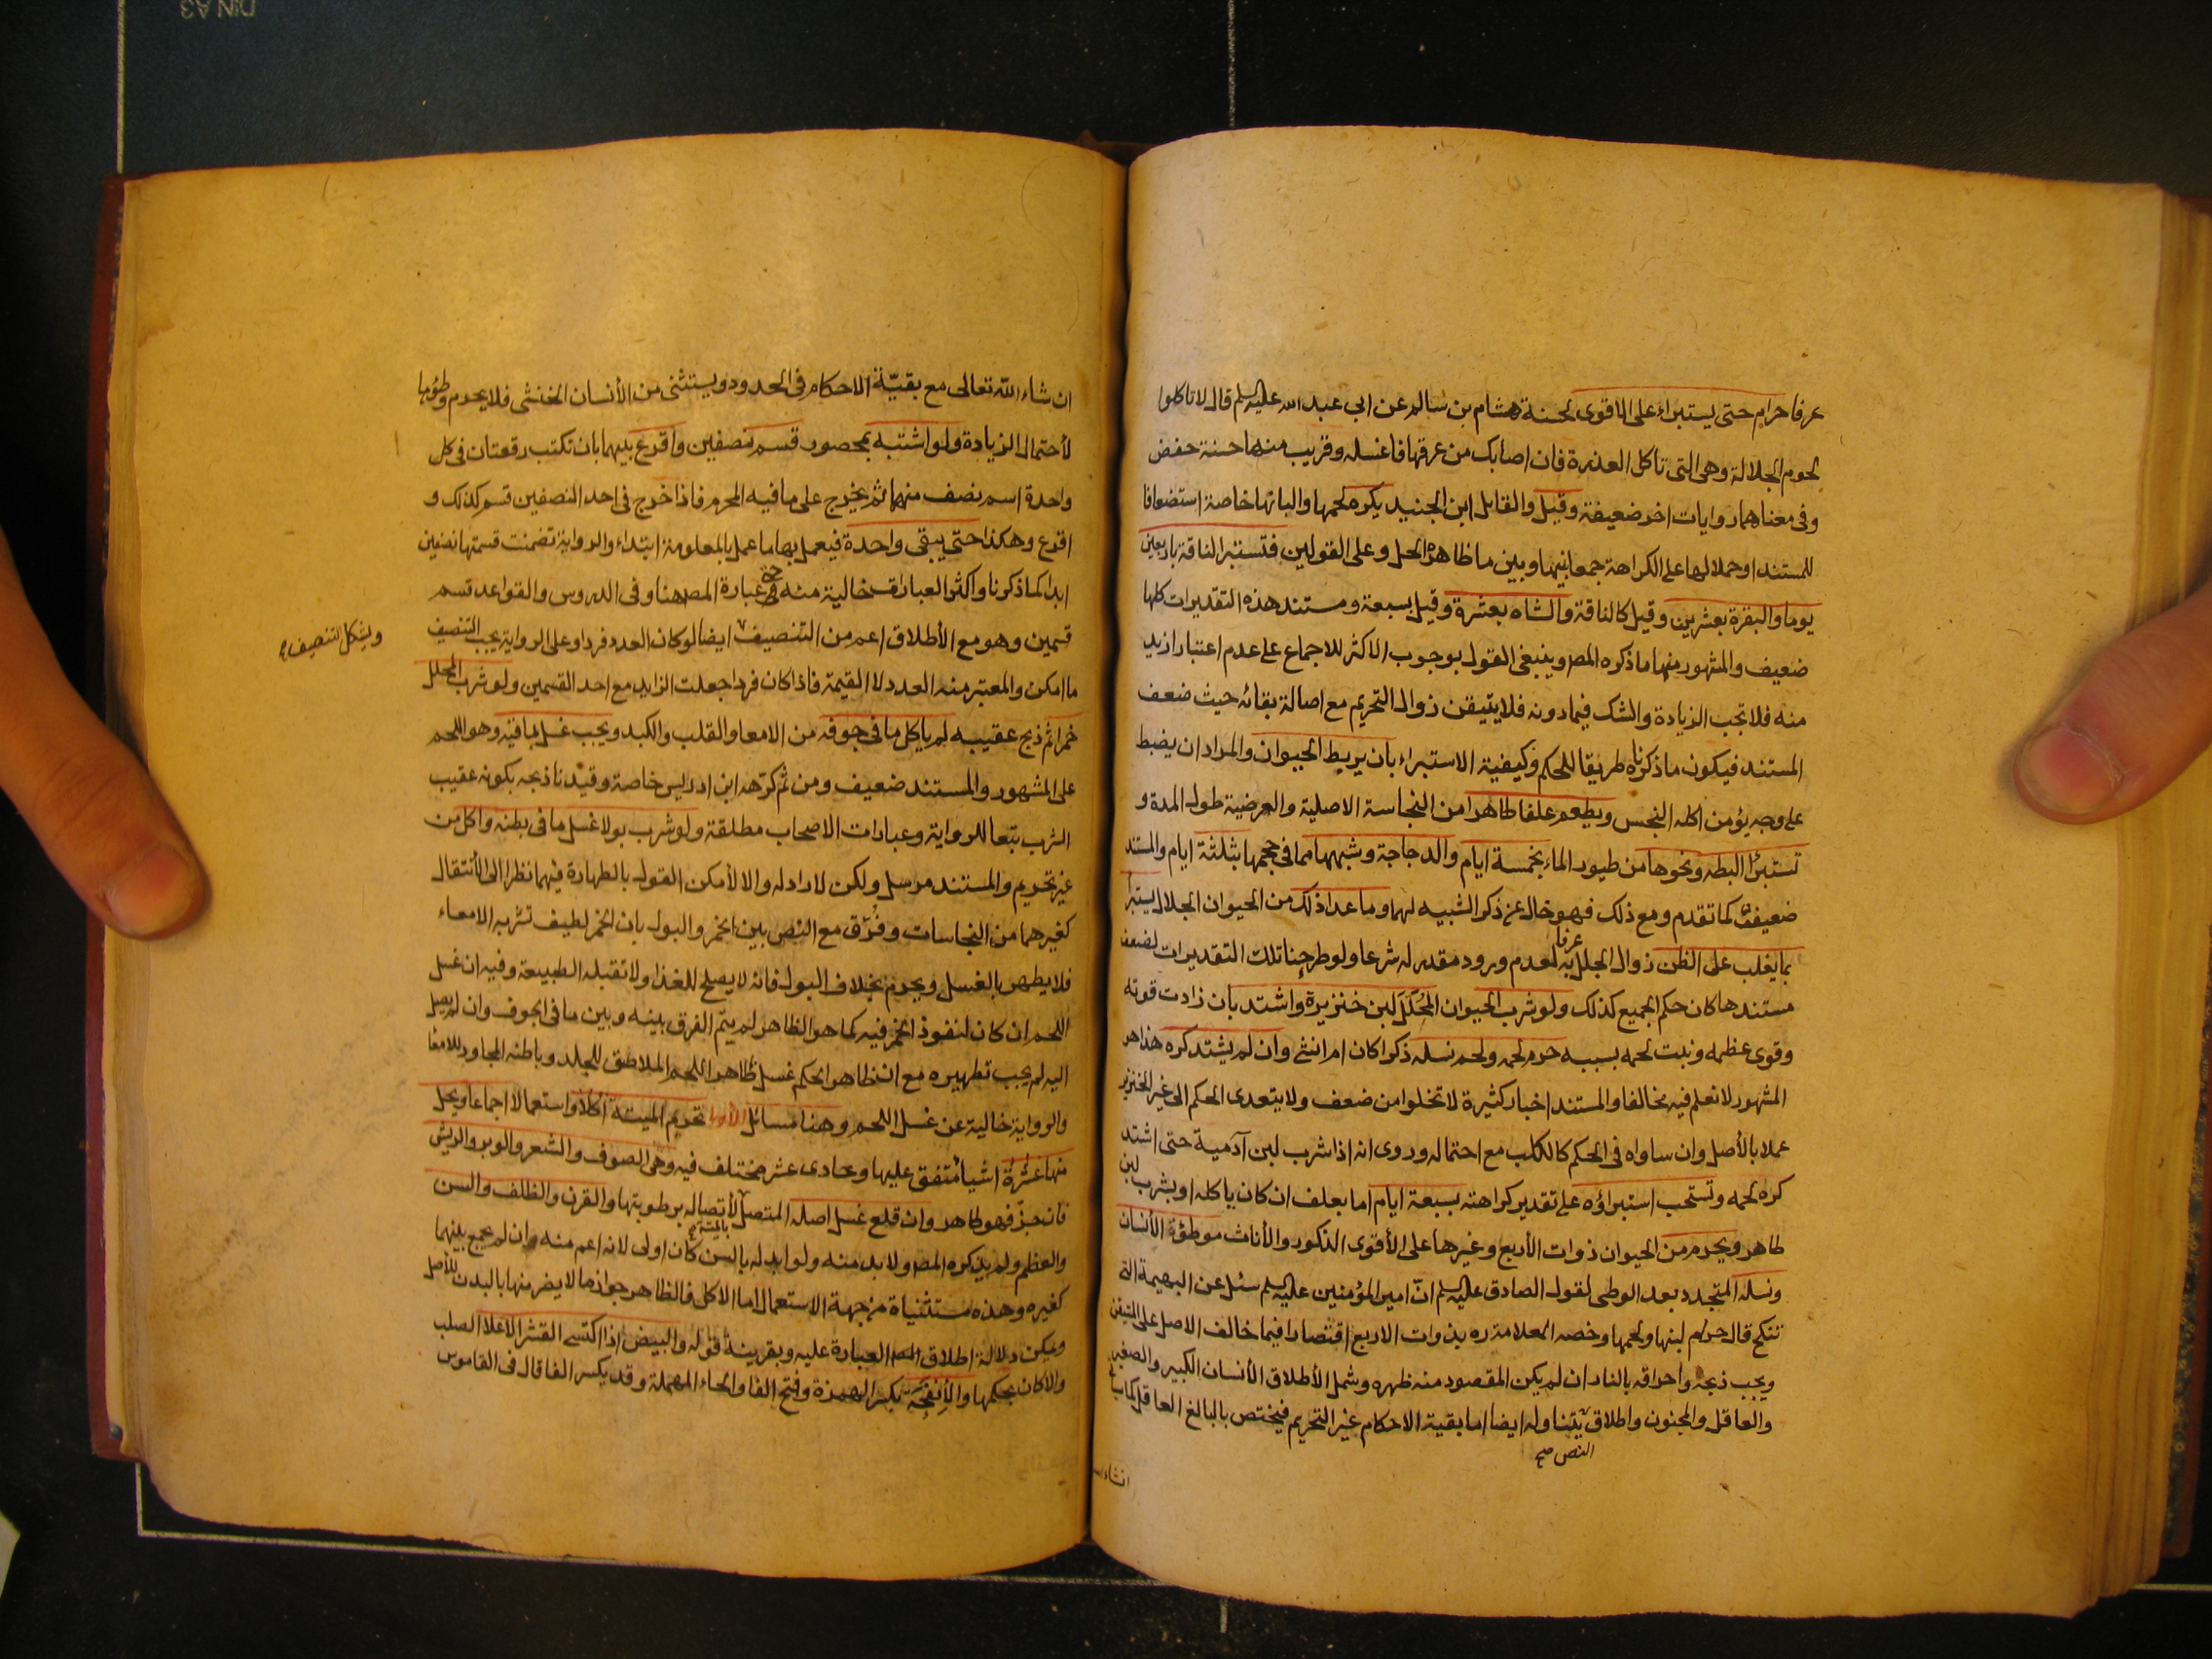 عرفا حرام حتى يستبراء على الاقوى لحسنة هشام بن سالم عن ابي عبد الله عليه السلم قال لا تاكلوا
لحوم الجلالة وهى التى تاكل العذرة فان اصابك من عرقها فاغسله وقريب منها حسنة حفص
وفى معناهما روايات اخر ضعيفة وقيل والقايل ابن الجنيد يكره لحمها والبانها خاصة استضعافا
للمستند او حملا لها على الكراهة جمعا بينها وبين ما ظاهره الحل وعلى القولين فتستبرا الناقة باربعين
يوما والبقرة بعشرين وقيل كالناقة والشاه بعشرة وقيل بسبعة ومستند هذه التقديرات كلها
ضعيف والمشهور منها ما ذكره المص وينبغى القول بوجوب الاكثر للاجماع على عدم اعتبار ازيد
منه فلا تجب الزيادة والشك فيما دونه فلا يتيقن زوال التحريم مع اصالة بقائه حيث ضعف
المستند فيكون ما ذكرناه طريقا للحكم وكيفية الاستبراء بان يربط الحيوان والمراد ان يضبط
على وجه يؤمن اكله النجس ويطعم علفا طاهرا من النجاسة الاصلية والعرضية طول المدة و
تستبرئ البطه ونحوها من طيور الماء بخمسة ايام والدجاجة وشبهها مما فى حجمها بثلثة ايام والمستند
ضعيف كما تقدم ومع ذلك فهو خال عن ذكر الشبيه لهما وما عدا ذلك من الحيوان الجلال يستبرأ
بما يغلب على الظن زوال الجلل به عرفا لعدم ورود مقدر له شرعا ولو طرحنا تلك التقديرات لضعف
مستندها كان حكم الجميع كذلك ولو شرب الحيوان المحلل لبن خنزيرة واشتد بان زادت قوته
وقوى عظمه ونبت لحمه بسببه حرم لحمه ولحم نسله ذكرا كان ام انثى وان لم يشتد كره هذا هو
المشهور لا نعلم فيه مخالفا والمستند اخبار كثيرة لا تخلوا من ضعف ولا يتعدى الحكم الى غير الخنزير
عملا بالأصل وان ساواه فى الحكم كالكلب مع احتماله وروى انه اذا شرب لبن آدمية حتى اشتد
كره لحمه وتستحب استبراؤه على تقدير كراهته بسبعة ايام اما بعلف ان كان ياكله او بشرب لبن
طاهر ويحرم من الحيوان ذوات الأربع وغيرها على الأقوى الذكور والأناث موطؤة الأنسان
ونسله المتجدد بعد الوطى لقول الصادق عليه السلم انّ امير المؤمنين عليه السلم سئل عن البهيمة التى
تنكح قال حرام لبنها ولحمها وخصه العلامة ره بذوات الاربع اقتصارا فيما خالف الاصل على المتيقن
ويجب ذبحه واحراقه بالنار ان لم يكن المقصود منه ظهره وشمل الأطلاق الأنسان الكبير والصغير
والعاقل والمجنون واطلاق يتناوله ايضا اما بقية الاحكام غير التحريم فيختص بالبالغ العاقل كما سيأتى
النص صح
انشاء الله
ان شاء الله تعالى مع بقيّة الاحكام فى الحدود ويستثنى من الأنسان الخنثى فلا يحرم وطؤها
لأحتمال الزيادة ولو اشتبه بمحصور قسم نصفين واقرع بينهما بان تكتب رقعتان فى كل
واحدة اسم نصف منهما ثم يخرج على ما فيه المحرم فاذا خرج فى احد النصفين قسم كذلك و
اقرع وهكذا حتى يبقى واحدة فيعمل بها ما عمل بالمعلومة ابتداء والرواية تضمنت قسمتها نصفين
ابدا كما ذكرنا واكثر العبارات خالية منه حتى عبارة المص هنا وفى الدروس والقواعد قسم
قسمين وهو مع الأطلاق اعم من التنصيف ايضا لو كان العدد فردا وعلى الرواية يجب التنصيف
ويشكل التنصيف
ما امكن والمعتبر منه العدد لا القيمة فاذا كان فردا جعلت الزايد مع احد القسمين ولو شرب المحلل
خمرا ثم ذبح عقيبه لم ياكل ما فى جوفه من الامعا والقلب والكبد ويجب غسل باقيه وهو اللحم
على المشهور والمستند ضعيف ومن ثم كرهه ابن ادريس خاصة وقيدنا ذبحه بكونه عقيب
الشرب تبعا للرواية وعبارات الاصحاب مطلقة ولو شرب بولا غسل ما فى بطنه واكل من
غير تحريم والمستند مرسل ولكن لا راد له والا لأمكن القول بالطهارة فيهما نظرا الى الأنتقال
كغيرهما من النجاسات وفُرّق مع النص بين الخمر والبول بان الخمر لطيف تشربه الامعاء
فلا يطهر بالغسل ويحرم بخلاف البول فانه لا يصلح للغذا ولا تقبله الطبيعة وفيه ان غسل
اللحم ان كان لنفوذ الخمر فيه كما هو الظاهر لم يتم الفرق بينه وبين ما فى الجوف وان لم يصل
اليه لم يجب تطهيره مع ان ظاهر الحكم غسل ظاهر اللحم الملاصق للجلد وباطنه المجاور للامعا
والرواية خالية عن غسل اللحم وهنا مسائل الأولى تحريم الميتة اكلا واستعمالا اجماعا ويحل
منها عشرة اشياء متفق عليها وحادى عشر مختلف فيه وهى الصوف والشعر والوبر والريش
فان جزّ فهو طاهر وان قلع غسل اصله المتصل لأتصاله برطوبتها والقرن والظلف والسن
والعظم ولم يذكره المص ولا بد منه ولو ابدله بالسن كان اولى لانه اعم منه وان لم يجمع بينهما
كغيره وهذه مستثناة من جهة الاستعمال اما الاكل فالظاهر جواز ما لا يضر منها بالبدن للأصل
ويمكن دلالة اطلاق العبارة عليه وبقرينة قوله والبيض اذا اكتسى القشر الاعلا الصلب
والا كان بحكمها والأنفحة بكسر الهمزة وفتح الفا والحاء المهملة وقد يكسر الفا قال فى القاموس